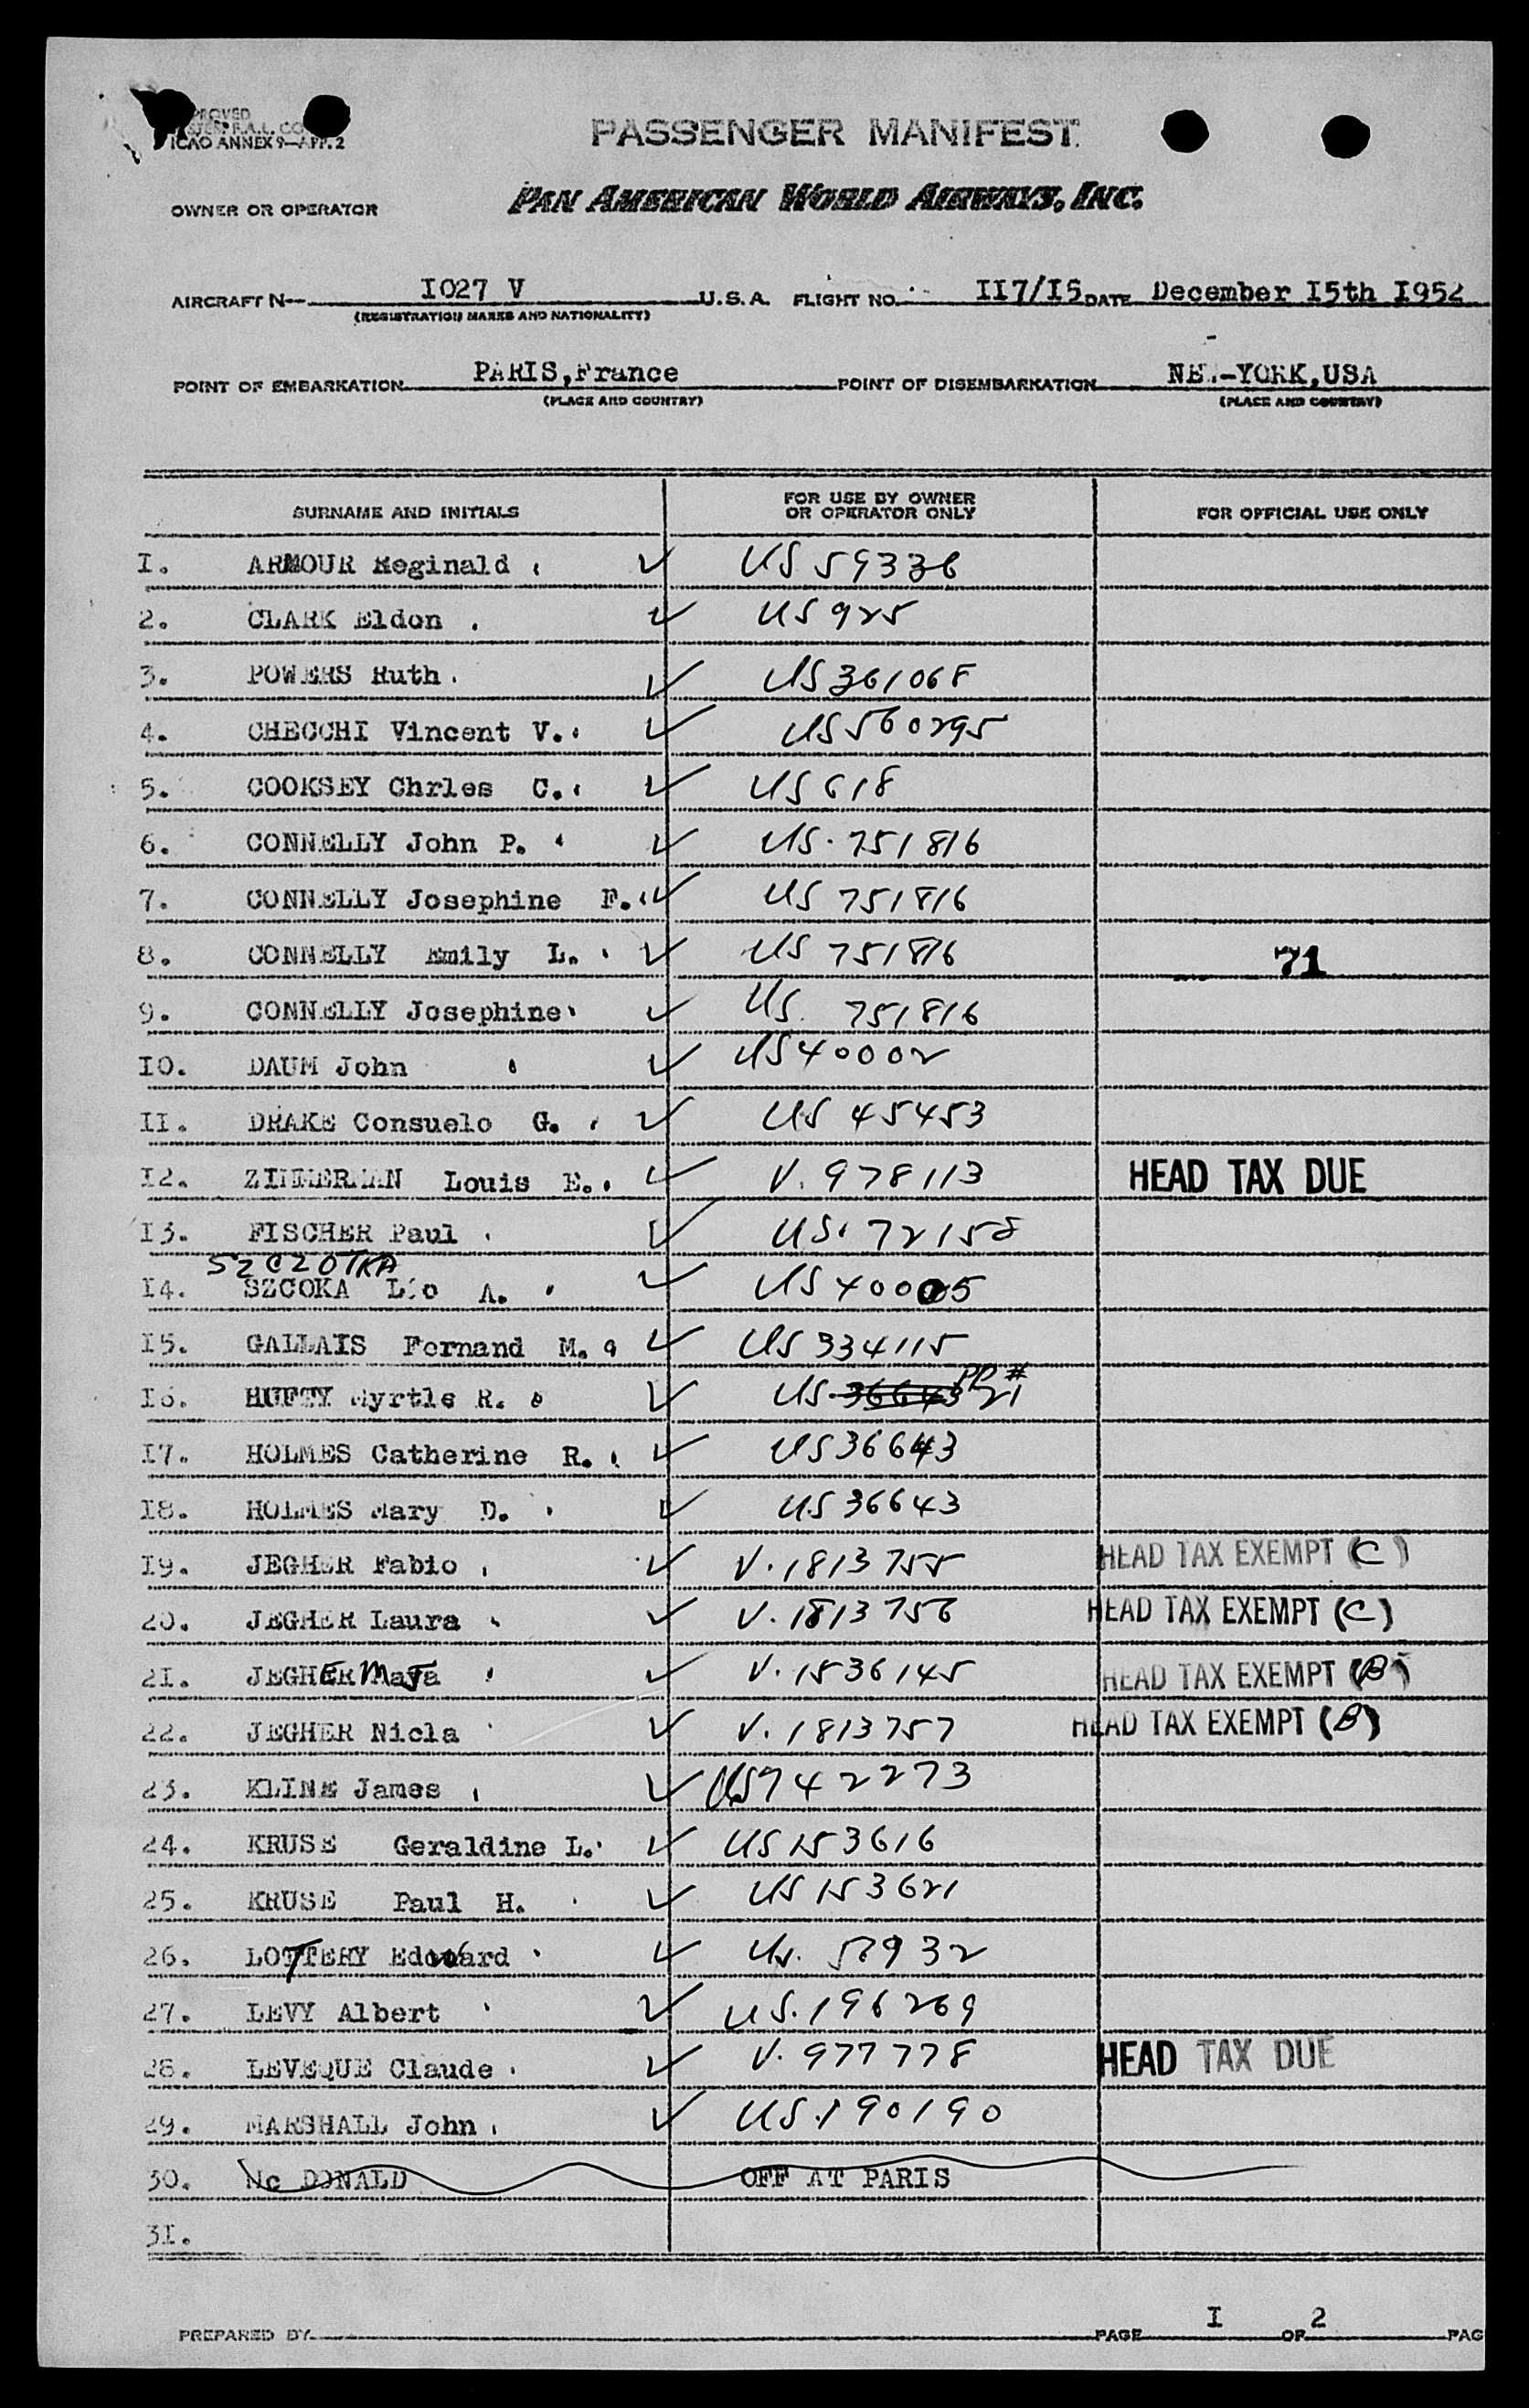 PROVED
ICAO ANNEX 9—APP. 2
PASSENGER MANIFEST
OWNER OR OPERATOR PAN AMERICAN WORLD AIRWAYS, INC.
AIRCRAFT N— I027 V U.S.A. FLIGHT NO. II7/I5 DATE December I5th I952
(REGISTRATION MARKS AND NATIONALITY)
POINT OF EMBARKATION PARIS,France POINT OF DISEMBARKATION NEW-YORK,USA
(PLACE AND COUNTRY) (PLACE AND COUNTRY)
SURNAME AND INITIALS FOR USE BY OWNER OR OPERATOR ONLY FOR OFFICIAL USE ONLY
I. ARMOUR Reginald ✓ US 59336
2. CLARK Eldon . ✓ US 925
3. POWERS Ruth. ✓ US 361068
4. CHECCHI Vincent V. ✓ US 560295
5. COOKSEY Chrles C. ✓ US 618
6. CONNELLY John P. ✓ US. 751816
7. CONNELLY Josephine F. ✓ US 751816
8. CONNELLY Emily L. ✓ US 751816 71
9. CONNELLY Josephine ✓ US. 751816
IO. DAUM John ✓ US 40002
II. DRAKE Consuelo G. ✓ US 45453
I2. ZIMMERMAN Louis E. ✓ V. 978113 HEAD TAX DUE
I3. FISCHER Paul . ✓ US. 72158
SZCZOTKA
I4. SZCOKA Leo A. ✓ US 40005
I5. GALLAIS Fernand M. ✓ US 334115
I6. HUFTY Myrtle R. ✓ US 36643 PP # 21
I7. HOLMES Catherine R. ✓ US 36643
I8. HOLMES Mary D. ✓ US 36643
I9. JEGHER Fabio . ✓ V. 1813755 HEAD TAX EXEMPT (C)
20. JEGHER Laura ✓ V. 1813756 HEAD TAX EXEMPT (C)
2I. JEGHER Maja ✓ V. 1536145 HEAD TAX EXEMPT (B)
22. JEGHER Nicla ✓ V. 1813757 HEAD TAX EXEMPT (B)
23. KLINE James ✓ US 742273
24. KRUSE Geraldine L. ✓ US 153616
25. KRUSE Paul H. ✓ US 153621
26. LOTTERY Edouard ✓ US. 57932
27. LEVY Albert ✓ US. 196269
28. LEVEQUE Claude . ✓ V. 977778 HEAD TAX DUE
29. MARSHALL John . ✓ US. 190190
30. Mc DONALD OFF AT PARIS
3I.
PREPARED BY PAGE I OF 2 PAG